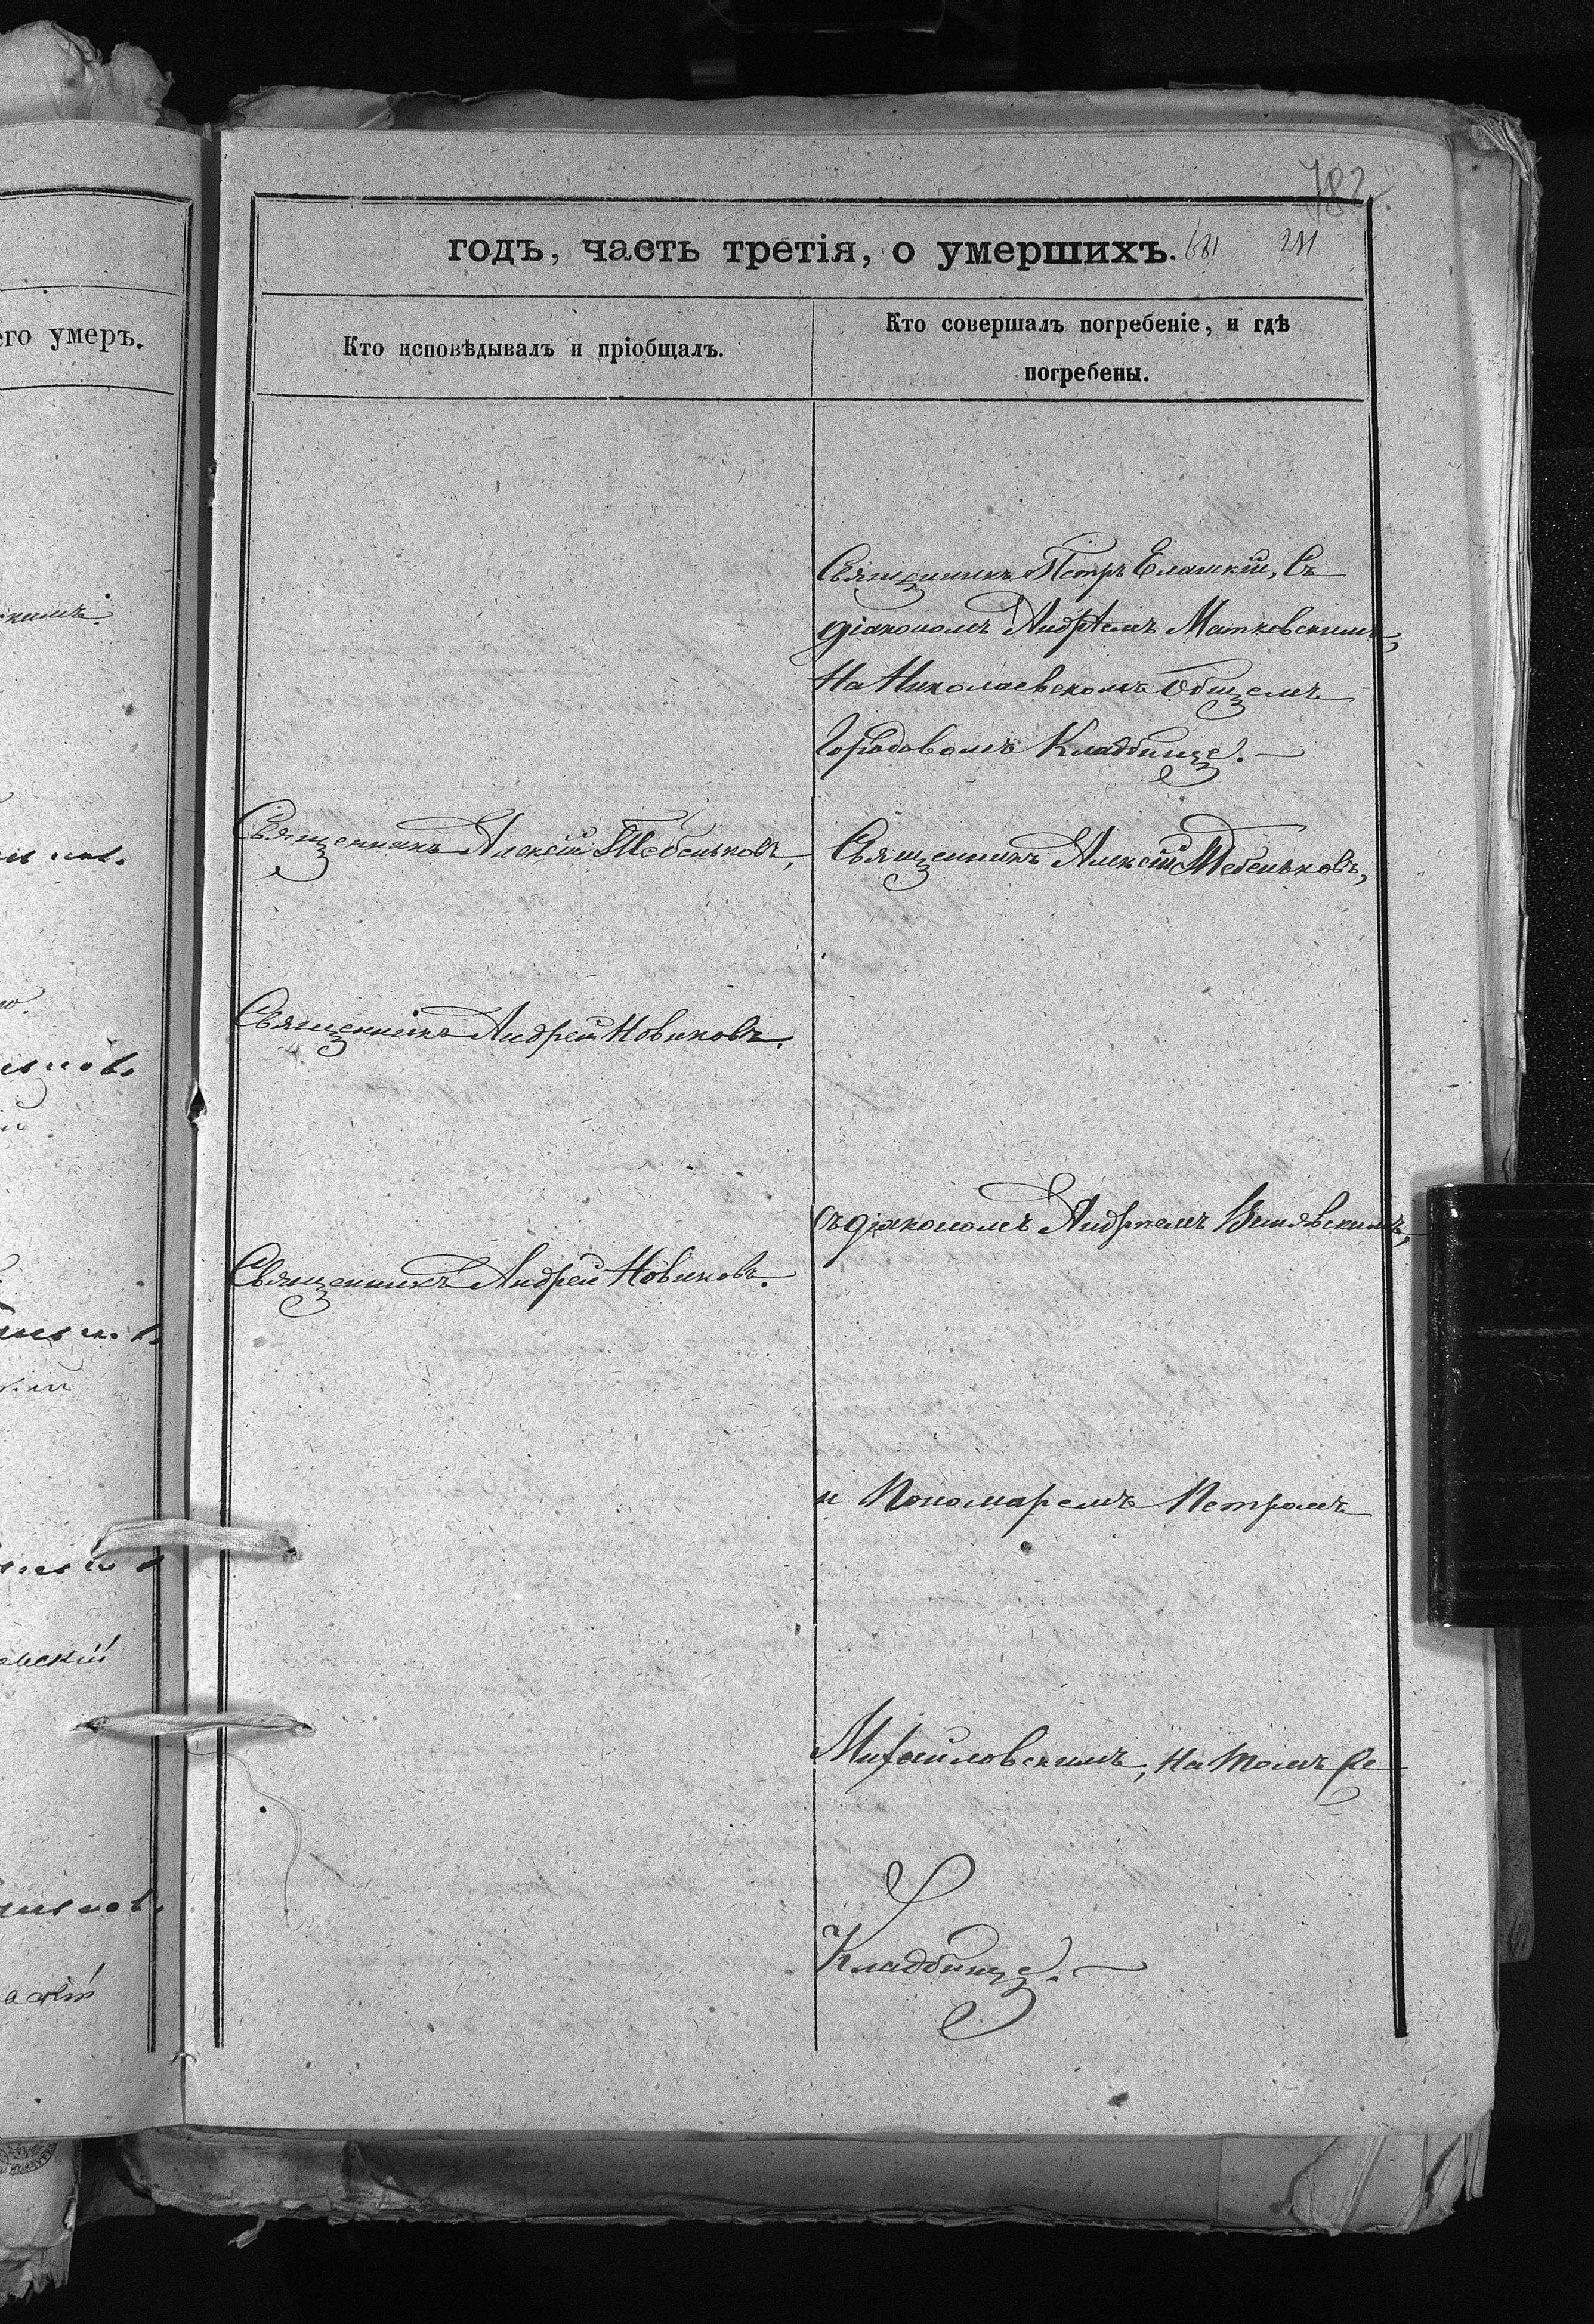 782
годъ, часть третія, о умершихъ. 681 211
его умеръ.
Кто исповѣдывалъ и пріобщалъ.
Кто совершалъ погребеніе, и гдѣ
погребены.
Священникъ Петръ Елатскій, Съ
діакономъ Андреемъ Матковскимъ,
На Николаевскомъ Общемъ
Городовомъ Кладбище. —
Священникъ Алексій Тебеньковъ,
Священникъ Алексій Тебеньковъ,
Священникъ Андрей Новиковъ.
Съ діакономъ Андреемъ
Священникъ Андрей Новиковъ.
и Пономаремъ Петромъ
Михайловскимъ, На томъ же
Кладбище. —